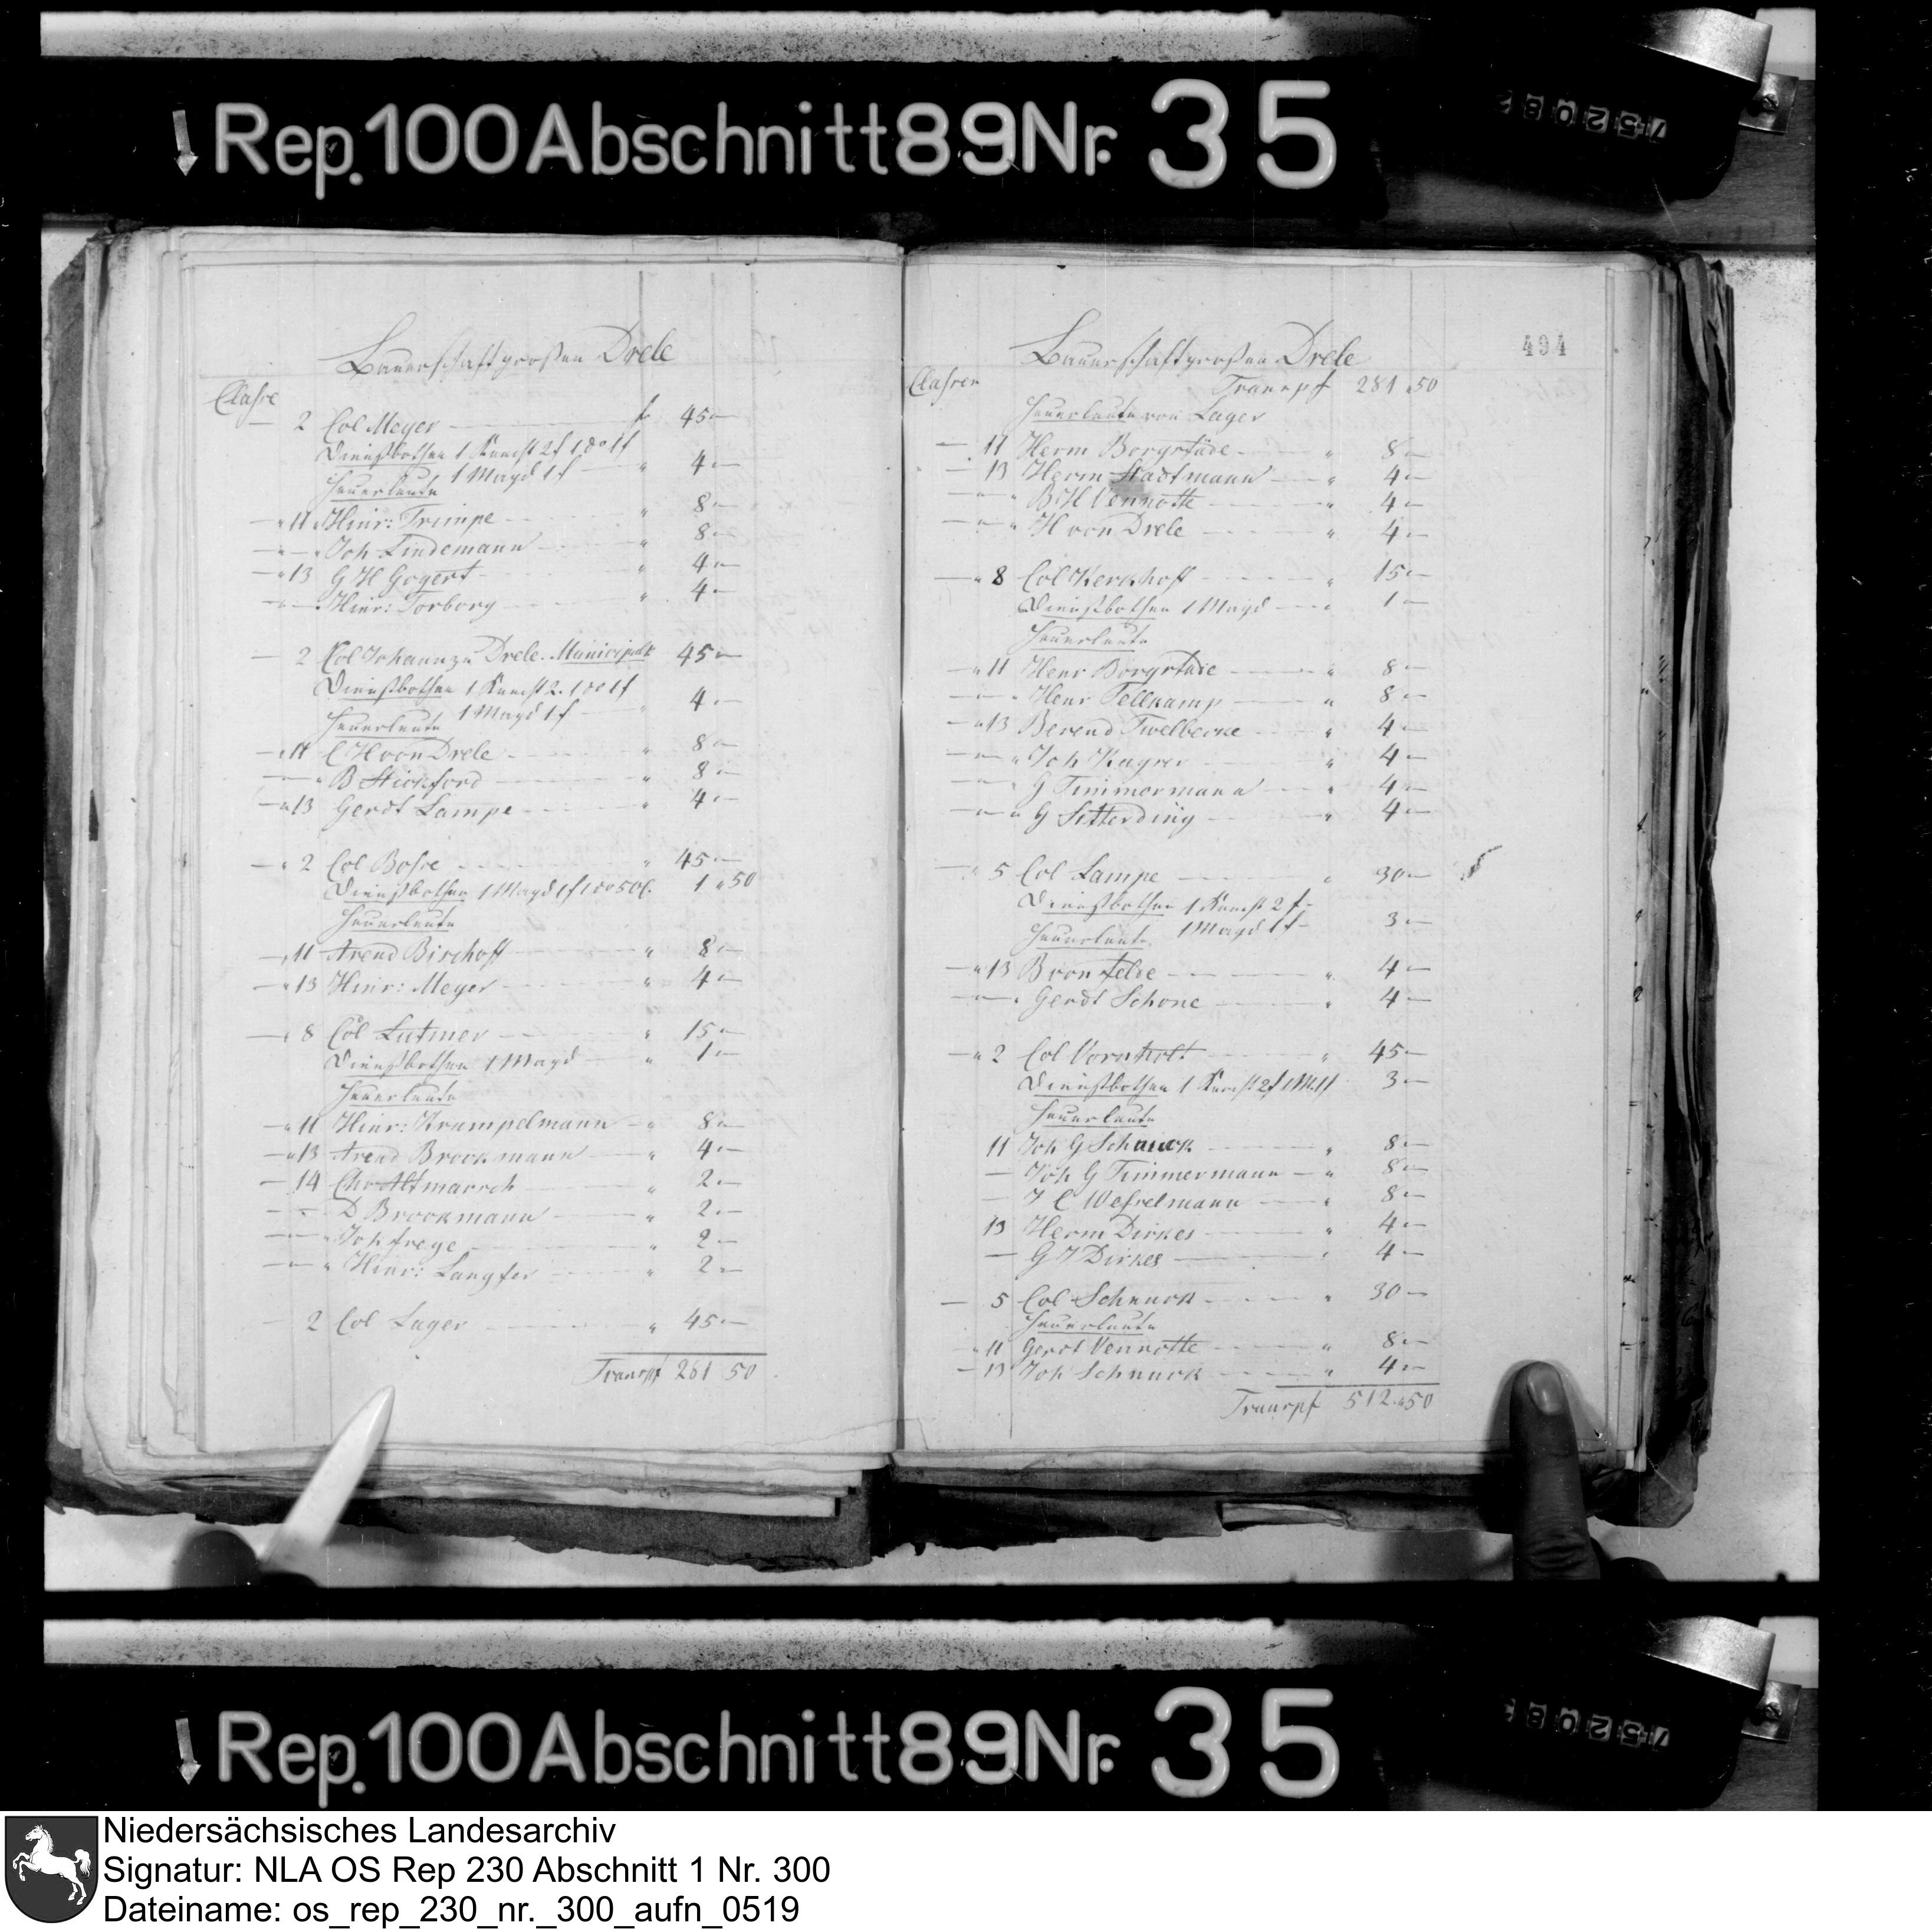 Rep. 100 Abschnitt 89 Nr. 35
752082
Bauerschaft grossen Drele
Classe
— 2 Col Meyer — fr 45 "—
Dienstbothen 1 Knecht 2 f 1 do 1 f
1 Magd 1 f — " 4 "—
Heuerleute
— " 11 Hinr: Trimpe — " 8 "—
— " — " Joh Lindemann — " 8 "—
— " 13 G H Gogert — " 4 "—
— " — Hinr: Torborg — " 4 "—
— 2 Col Johann zu Drele. Municipale 45 "—
Dienstbothen 1 Knecht 2. 1 do 1 f
1 Magd 1 f — " 4 "—
Heuerleute
— " 11 C H von Drele — " 8 "—
— " — " B Stickford — " 8 "—
— " 13 Gerdt Lampe — " 4 "—
— " 2 Col Bosse — " 45 "—
Dienstbothen 1 Magd 1 f 1 do 50 C. 1 " 50
Heuerleute
— " 11 Arend Bischoff — " 8 "—
— " 13 Hinr: Meyer — " 4 "—
— " 8 Col Lutmer — " 15 "—
Dienstbothen 1 Magd — " 1 "—
Heuerleute
— " 11 Hinr: Krumpelmann — " 8 "—
— " 13 Arend Brockmann — " 4 "—
— 14 Chr Altmarsch — " 2 "—
— " — D Brockmann — " 2 "—
— " — " Joh frege — " 2 —
— " — " Hinr: Langfer — " 2 "—
— 2 Col Lager — " 45 "—
Transpf 281 50
494
Bauerschaft grossen Drele
Classen
Transpf 281 " 50
Heuerleute von Lager
— 11 Herm Borgstäde — " 8 "—
— 13 Herm Stadtmann — " 4 "—
— " — " B H Vennotte — " 4 "—
— " — " H von Drele — " 4 "—
— " 8 Col Kerkhoff — " 15 "—
Dienstbothen 1 Magd — " 1 "—
Heuerleute
— " 11 Henr Borgstade — " 8 "—
— " — " Henr Tellkamp — " 8 "—
— " 13 Berend Twelbecke — " 4 "—
— " — " Joh Kayser — " 4 "—
— " — " G Timmermann — " 4 "—
— " — " G Sitterding — " 4 "—
— " 5 Col Lampe — " 30 "—
Dienstbothen 1 Knecht 2 f —
1 Magd 1 f — 3 "—
Heuerleute
— " 13 B von felde — " 4 "—
— " — " Gerdt Schone — " 4 "—
— " 2 Col Vornholt — " 45 "—
Dienstbothen 1 Knecht 2 f 1 M. 1 f 3 "—
Heuerleute
11 Joh G Schnuck — " 8 "—
— Joh G Timmermann — " 8 "—
— J C Wesselmann — " 8 "—
13 Herm Dirkes — " 4 "—
— G J Dirkes — " 4 "—
— 5 Col Schnuck — " 30 "—
Heuerleute
— " 11 Gerdt Vennotte — " 8 "—
— 13 Joh Schnuck — " 4 "—
Transpf 512 " 50
Rep. 100 Abschnitt 89 Nr. 35
752082
Niedersächsisches Landesarchiv
Signatur: NLA OS Rep 230 Abschnitt 1 Nr. 300
Dateiname: os_rep_230_nr._300_aufn_0519